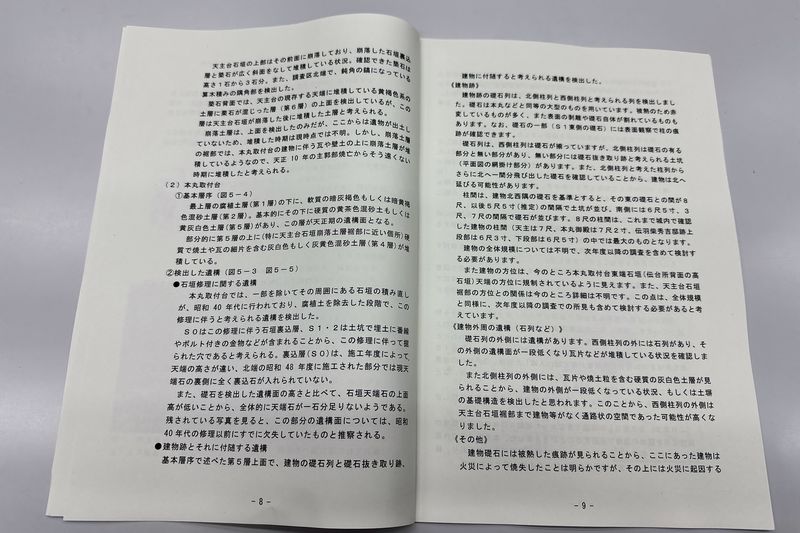 天主台石垣の上部はその前面に崩落しており、崩落した石垣裏込
層と築石が広く斜面をなして堆積している状況。確認できた築石は
高さ1石から3石分。また、調査区北端で、鈍角の鎬になっている
算木積みの隅角部を検出した。
築石背面では、天主台の現存する天端に堆積している黄褐色系の
土層に栗石が混じった層（第6層）の上面を検出しているが、この
層は天主台石垣が崩落した後に堆積した土層と考えられる。
崩落土層は、上面を検出したのみだが、ここからは遺物が出土し
ていないため、堆積した時期は現時点では不明。しかし、崩落土層
の裾部では、本丸取付台の建物に伴う瓦や壁土の上に崩落土層が堆
積しているようなので、天正10年の主郭部焼亡からそう遠くない
時期に堆積したと考えられます。
（2）本丸取付台
①基本層序（図5－4）
最上層の腐植土層（第1層）の下に、軟質の暗灰褐色もしくは暗黄褐
色混砂土層（第2層）。基本的にその下に硬質の黄茶色混砂土もしくは
黄灰白色土層（第5層）があり、この層が天正期の遺構面となる。
部分的に第5層の上に（特に天主台石垣崩落土層裾部に近い個所）硬
質で焼土や瓦の細片を含む灰白色もしくは灰黄色混砂土層（第4層）が堆
積している。
②検出した遺構（図5－3　図5－5）
●石垣修理に関する遺構
本丸取付台では、一部を除いてその周囲にある石垣の積み直し
が、昭和40年代に行われており、腐植土を除去した段階で、この
修理に伴うと考えられる遺構を検出した。
S0はこの修理に伴う石垣裏込層、S1・2は土坑で埋土に番線
やボルト付きの金物などが含まれることから、この修理に伴って掘
られた穴であると考えられる。裏込層（S0）は、施工年度によって、
天端の高さが違い、北端の昭和48年度に施工された部分では現天
端石の裏側に全く裏込石が入れられていない。
また、礎石を検出した遺構面の高さと比べて、石垣天端石の上面
高が低いことから、全体的に天端石が一石分足りないようである。
残されている写真を見ると、この部分の遺構面については、昭和
40年代の修理以前にすでに欠失していたものと推察される。
●建物跡とそれに付随する遺構
基本層序で述べた第5層上面で、建物の礎石列と礎石抜き取り跡、
－8－
建物に付随すると考えられる遺構を検出した。
《建物跡》
建物跡の礎石列は、北側柱列と西側柱列と考えられる列を検出しまし
た。礎石は本丸などと同等の大型のものを用いています。被熱のため赤
変しているものが多く、また表面の剥離や礎石自体が割れているものも
あります。なお、礎石の一部（S1東側の礎石）には表面観察で柱の痕
跡が確認できます。
礎石列は、西側柱列は礎石が揃っていますが、北側柱列は礎石の有る
部分と無い部分があり、無い部分には礎石抜き取り跡と考えられる土坑
（平面図の網掛け部分）があります。また、北側柱列と考えた柱列から
さらに北へ一間分飛び出した礎石を確認していることから、建物は北へ
延びる可能性があります。
柱間は、建物北西隅の礎石を基準とすると、その東の礎石との間が8
尺、以後5尺5寸（推定）の間隔で土坑が並び、南側には6尺5寸、3
尺、7尺の間隔で礎石が並びます。8尺の柱間は、これまで城内で確認
した建物の柱間（天主は7尺、本丸御殿は7尺2寸、伝羽柴秀吉邸跡上
段部は6尺3寸、下段部は6尺5寸）の中では最大のものとなります。
建物の全体規模については不明で、次年度以降の調査を含めて検討す
る必要があります。
また建物の方位は、今のところ本丸取付台東端石垣（伝台所背面の高
石垣）天端の方位に規制されているように見えます。また、天主台石垣
裾部の方位との関係は今のところ詳細は不明です。この点は、全体規模
と同様に、次年度以降の調査での所見も含めて検討する必要があると考
えています。
《建物外周の遺構（石列など）》
礎石列の外側には遺構があります。西側柱列の外には石列があり、そ
の外側の遺構面が一段低くなり瓦片などが堆積している状況を確認しま
した。
また北側柱列の外側には、瓦片や焼土粒を含む硬質の灰白色土層が見
られることから、建物の外側が一段低くなっている状況、もしくは土塀
の基礎構造を検出したと思われます。このことから、西側柱列の外側は
天主台石垣裾部まで建物等がなく通路状の空間であった可能性が高くな
りました。
《その他》
建物礎石には被熱した痕跡が見られることから、ここにあった建物は
火災によって焼失したことは明らかですが、その上には火災に起因する
－9－